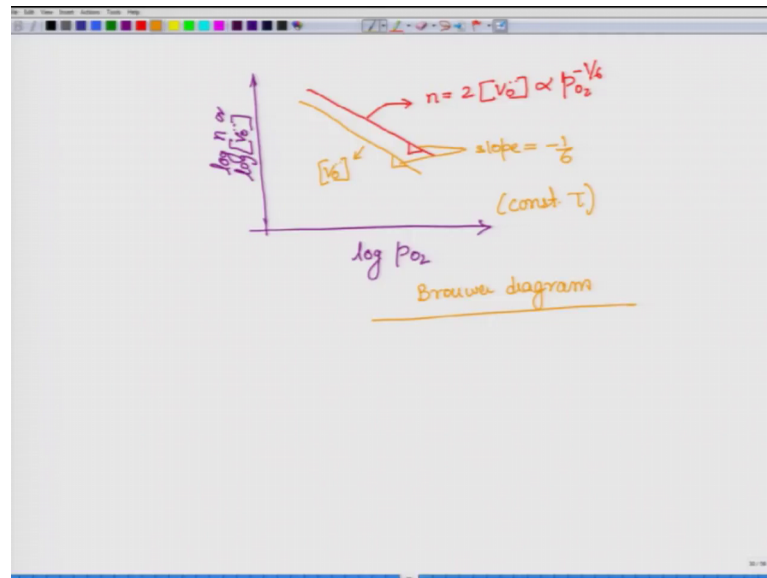 File Edit View Insert Actions Tools Help
n = 2 [V_O^{··}] ∝ p_{O2}^{-1/6}
log n or
log [V_O^{··}]
slope = -1/6
[V_O^{··}]
(const. T)
log pO2
Brouwer diagram